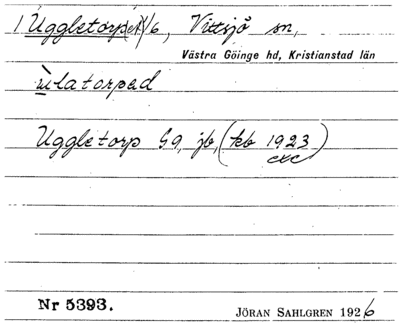 1 Uggletorp(et) 1/6, Vittsjö sn,
Västra Göinge hd, Kristianstad län
ùlatorped
Uggletorp Gg, jb, (kb 1923)
exc
Nr 5393.
JÖRAN SAHLGREN 1926